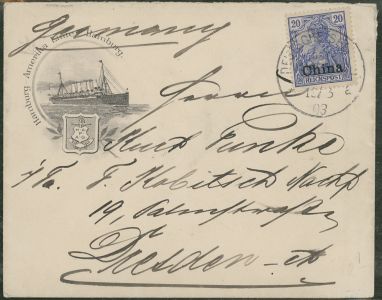 Germany
Hamburg Amerika Linie, Hamburg.
20 20
China
REICHSPOST
13/3
03
Herrn
Kurt Funke
i/Fa. F. Kobitsch Nachf
19,
Dresden-A